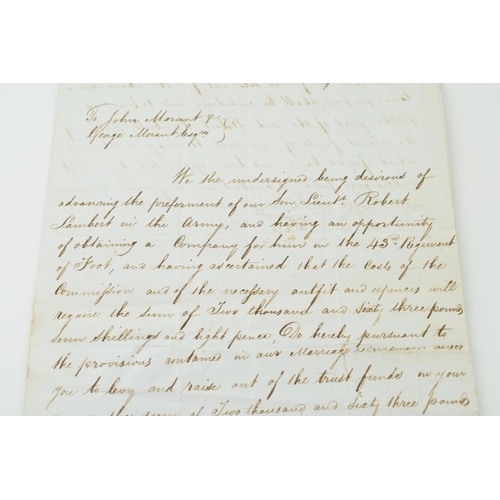 To John Morant &
George Morant Esqrs
We the undersigned being desirous of
advancing the preferment of our Son Lieut. Robert
Lambert in the Army, and having an opportunity
of obtaining a Company for him in the 43rd Regiment
of Foot, and having ascertained that the Costs of the
Commission and of the necessary outfit and expences will
require the sum of Two thousand and Sixty three pounds
seven Shillings and Eight pence, Do hereby pursuant to
the provisions contained in our Marriage
you to levy and raise out of the trust funds in your
sum of Two thousand and Sixty three pounds